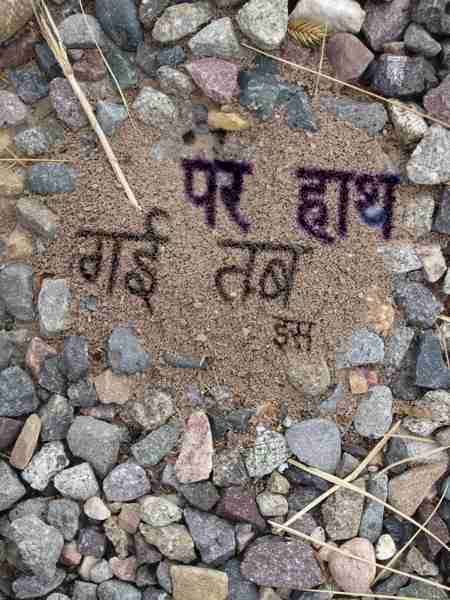 पर हाथ
गई तब
इस